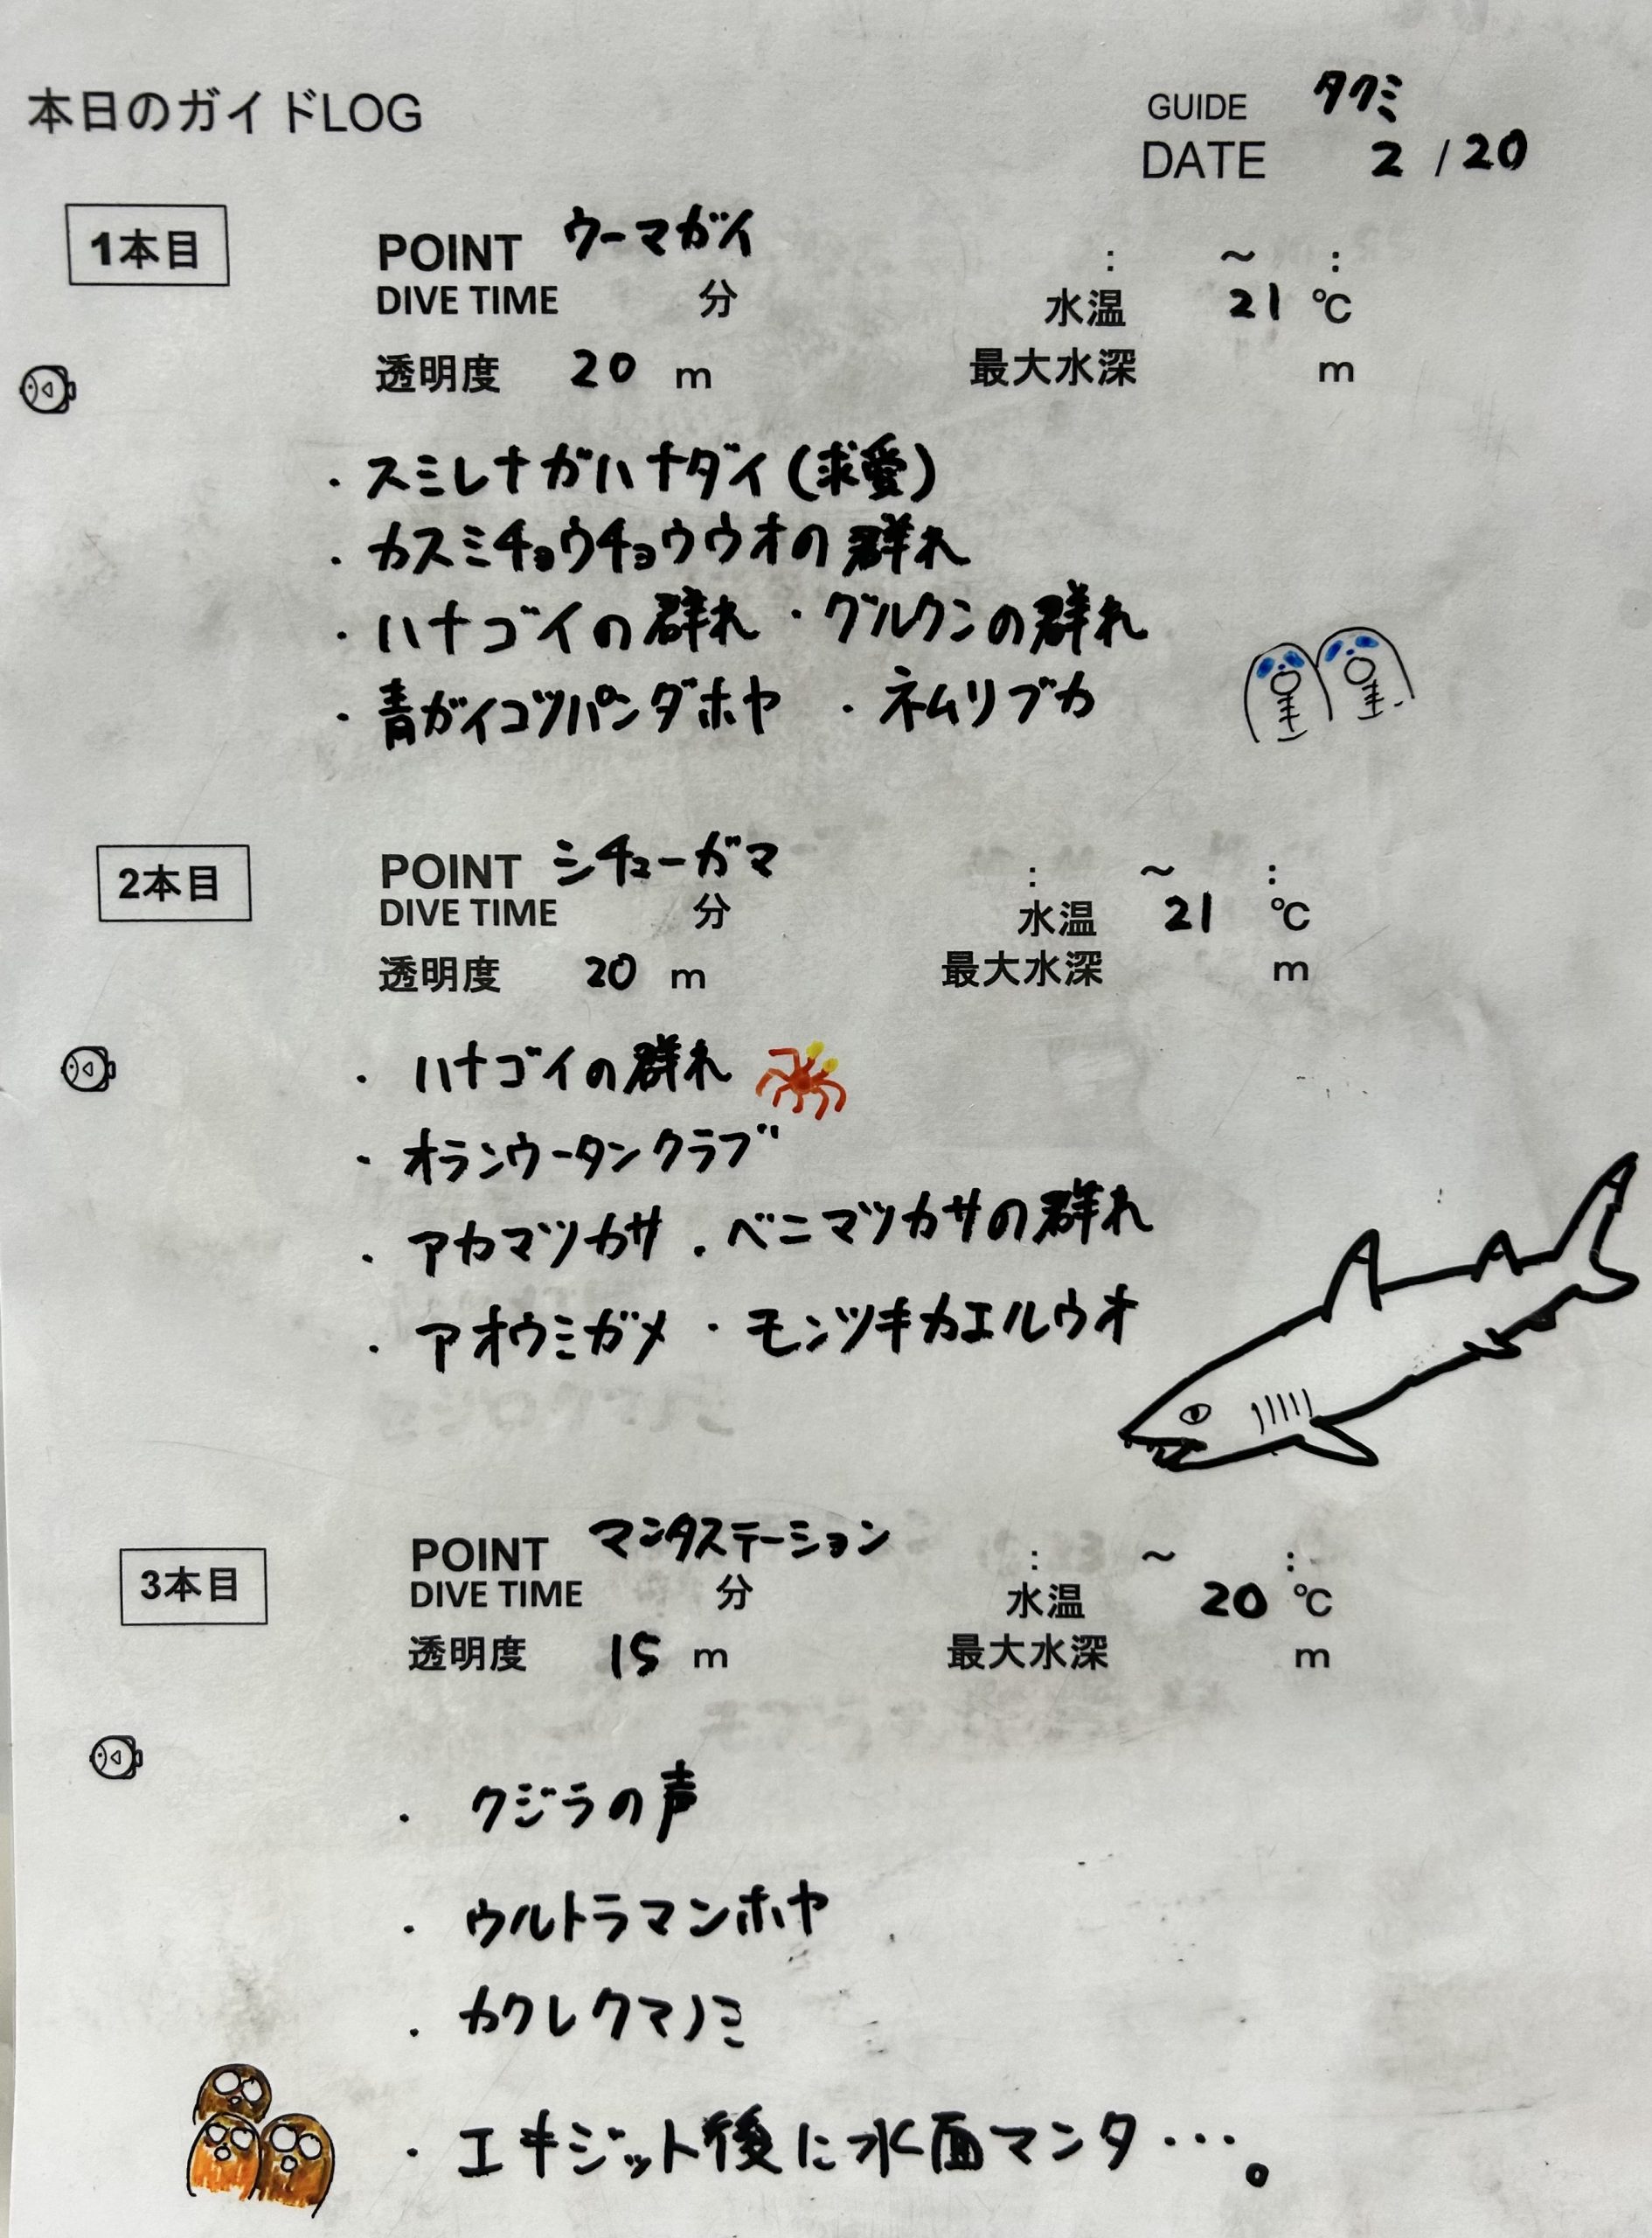 本日のガイドLOG
GUIDE タクミ
DATE 2 / 20
1本目
POINT ウーマガイ : ～ :
DIVE TIME 分 水温 21 ℃
透明度 20 m 最大水深 m
・スミレナガハナダイ(求愛)
・カスミチョウチョウウオの群れ
・ハナゴイの群れ ・グルクンの群れ
・青ガイコツパンダホヤ ・ネムリブカ
2本目
POINT シチューガマ : ～ :
DIVE TIME 分 水温 21 ℃
透明度 20 m 最大水深 m
・ハナゴイの群れ
・オランウータンクラブ
・アカマツカサ ・ベニマツカサの群れ
・アオウミガメ ・モンツキカエルウオ
3本目
POINT マンタステーション : ～ :
DIVE TIME 分 水温 20 ℃
透明度 15 m 最大水深 m
・クジラの声
・ウルトラマンホヤ
・カクレクマノミ
・エキジット後に水面マンタ…。